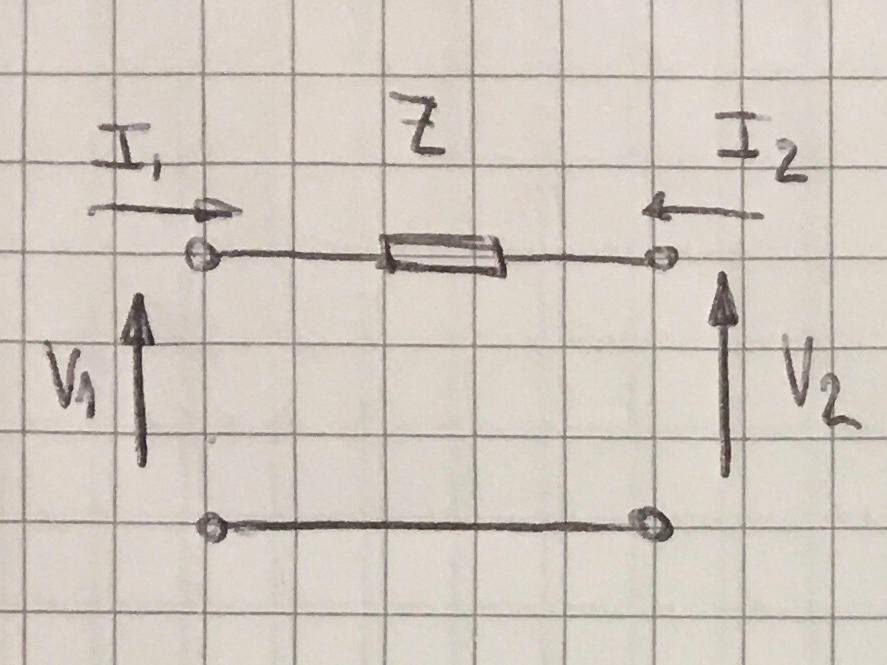 I₁ Z I₂
V₁ V₂